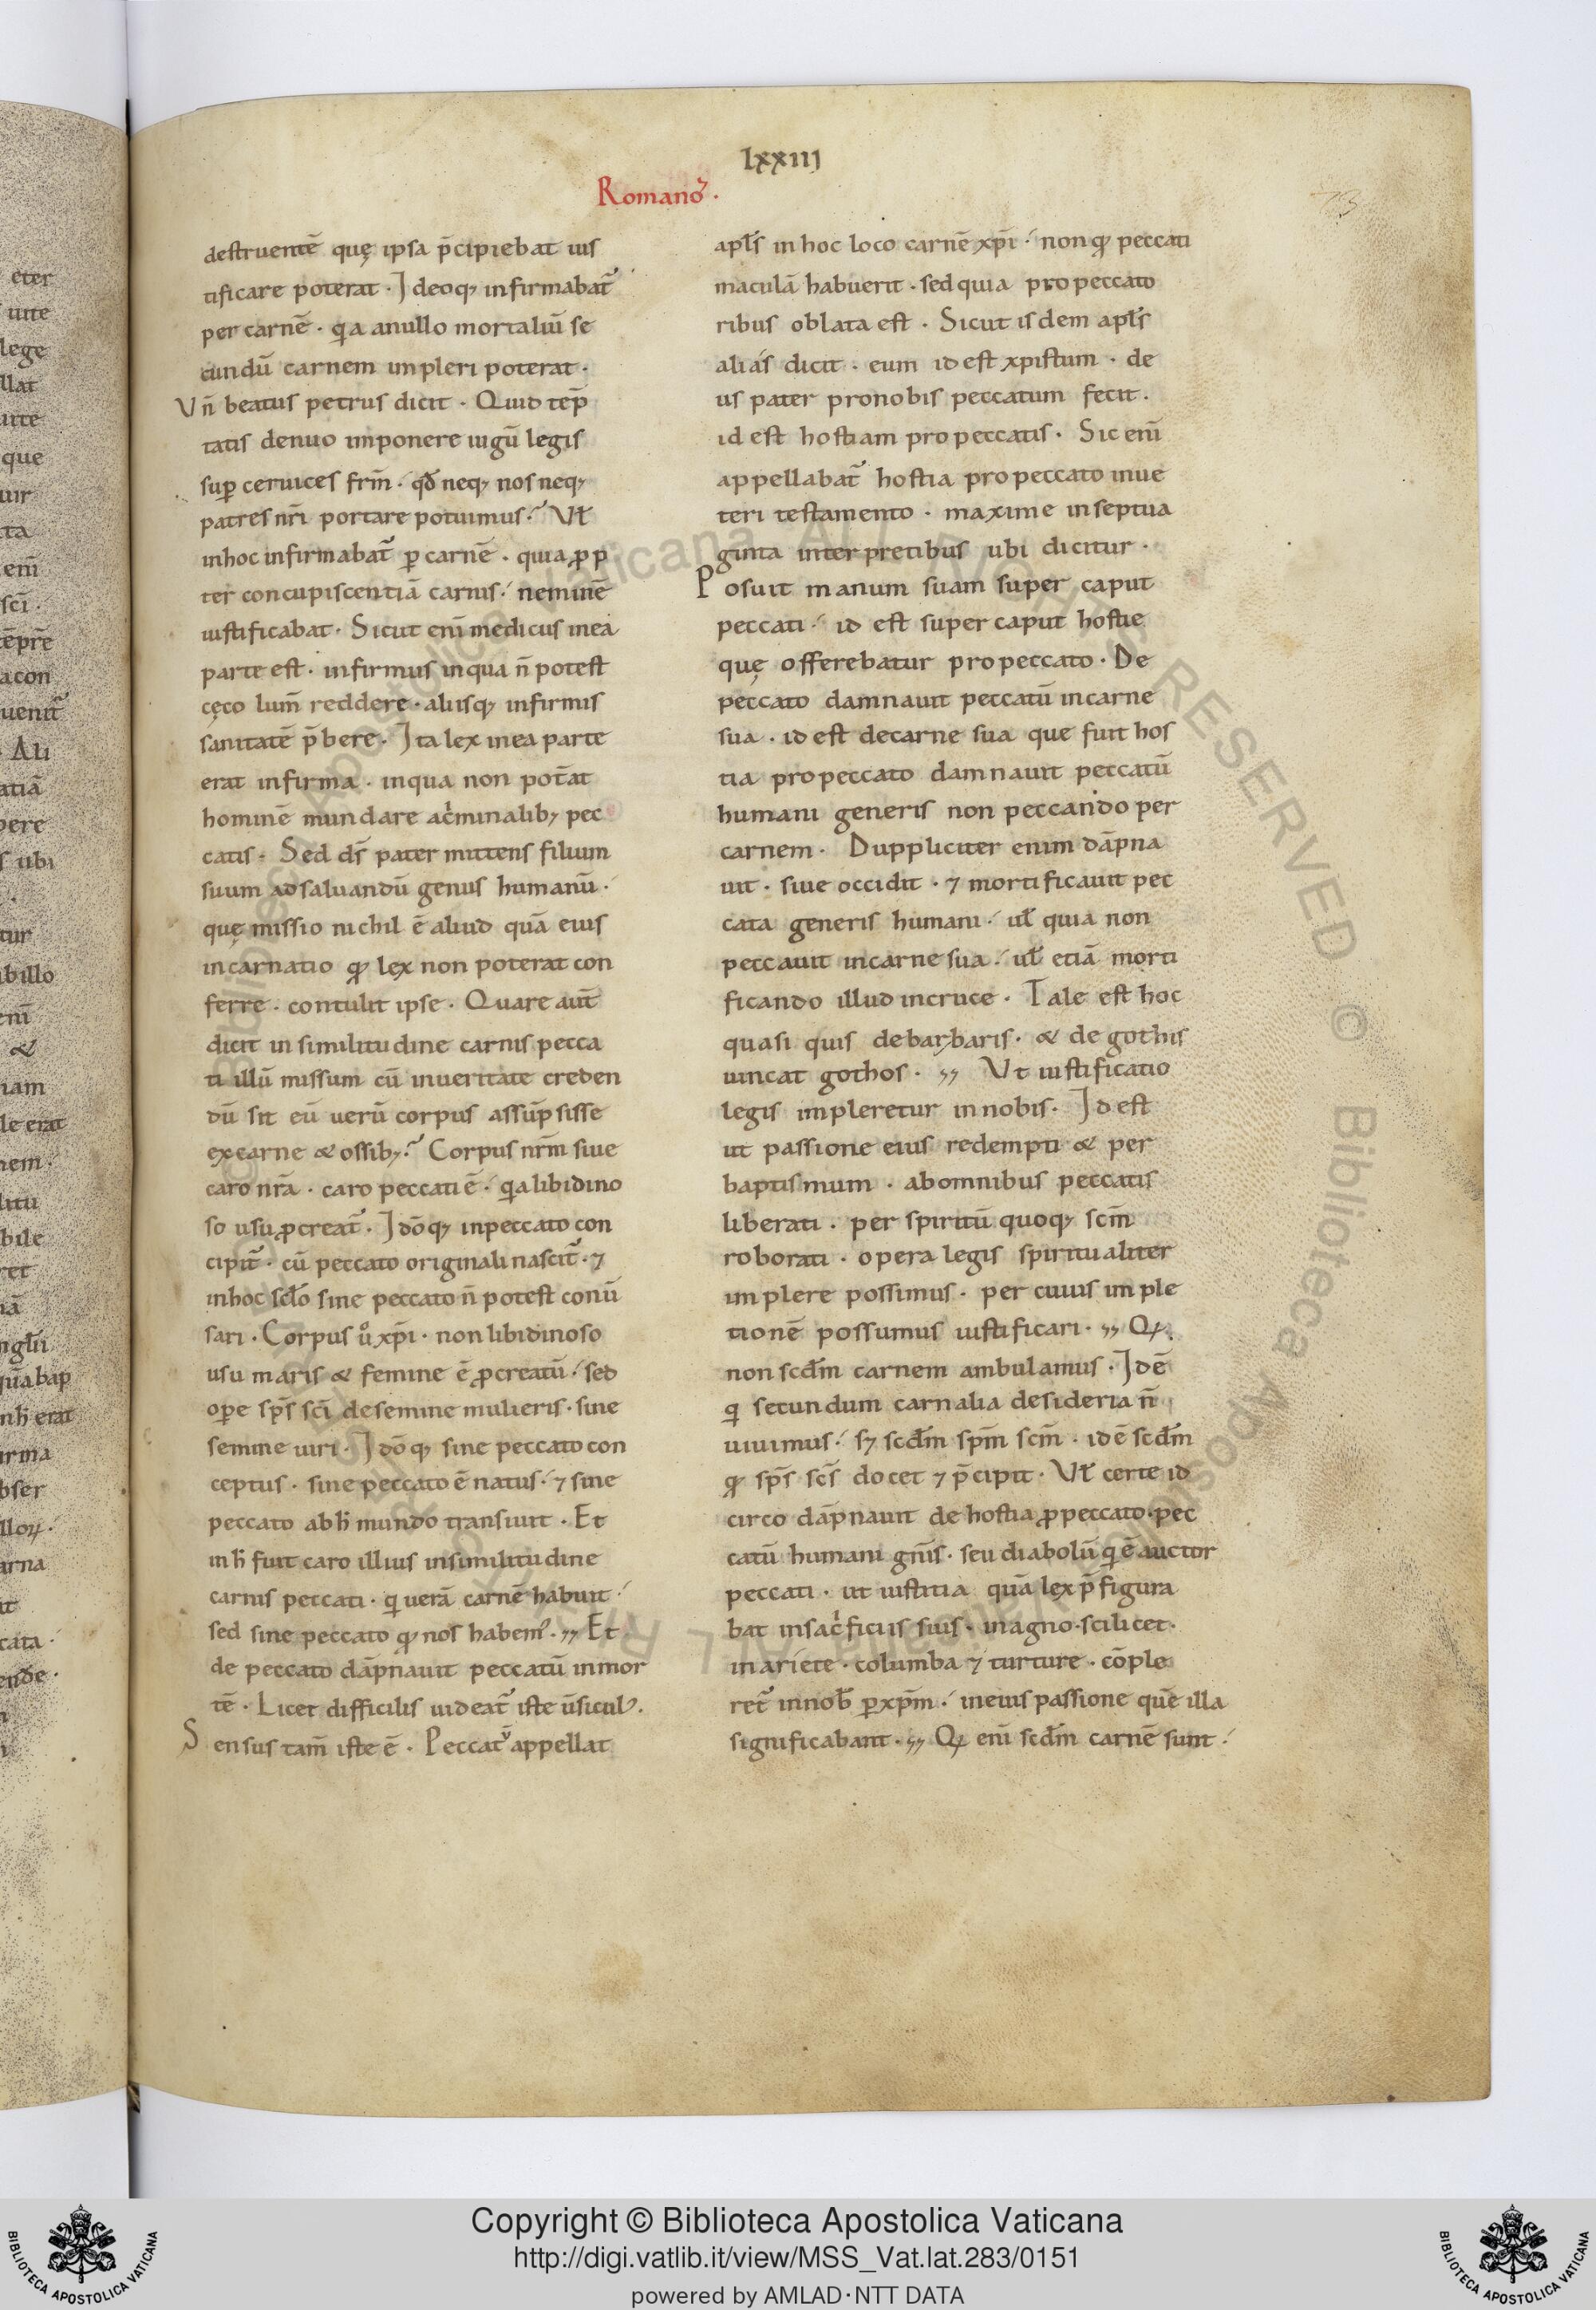 lxxiij
Romanoꝝ.
73
destruentē quę ipsa p̄cipiebat ius
tificare poterat · Jdeoq; infirmabat᷑
per carnē · qa anullo mortaliū se
cundū carnem impleri poterat ·
Vn̄ beatus petrus dicit · Quid tēp
tatis denuo imponere iugū legis
sup ceruices frm̄ · qđ neq; nos neq;
patres nr̄i portare potuimus · Vł
inhoc infirmabat᷑ ꝑ carnē · quia ꝓp
ter concupiscentiā carnis · neminē
iustificabat · Sicut eni̅ medicus inea
parte est · infirmus inqua n̄ potest
cęco lum̄ reddere · aliisq; infirmis
sanitatē p̄bere · Jta lex inea parte
erat infirma · inqua non pot̄at
hominē mundare acͥminalib; pec
catis · Sed ds̄ pater mittens filium
suum adsaluandū genus humanū ·
quę missio nichil ē aliud quā eius
incarnatio qđ lex non poterat con
ferre · contulit ipse · Quare aut̄
dicit in similitudine carnis pecca
ti illū missum cū inueritate creden
dū sit eū uerū corpus assūpsisse
excarne & ossib; · Corpus nr̄m siue
caro nr̄a · caro peccati ē · qa libidino
so usu ꝓcreat᷑ · Jdōq; inpeccato con
cipit᷑ · cū peccato originali nascit᷑ · ⁊
inhoc scło sine peccato n̄ potest conū
sari · Corpus uͦ xp̄i · non libidinoso
usu maris & femine ē ꝓcreatū · sed
oꝑe sp̄s sci̅ desemine mulieris · sine
semine uiri · Jdōq; sine peccato con
ceptus · sine peccato ē natus · ⁊ sine
peccato abh̄ mundo transiuit · Et
inh̄ fuit caro illius insimilitudine
carnis peccati · q uerā carnē habuit ·
sed sine peccato qđ nos habem᷒ · Et
de peccato dāpnauit peccatū inmor
tē · Licet difficilis uideat᷑ iste ūsicul᷒ ·
Sensus tam̄ iste ē · Peccat᷑ appellat
apłs in hoc loco carnē xp̄i · non qđ peccati
maculā habuerit · sed quia pro peccato
ribus oblata est · Sicut isdem apłs
alias dicit · eum id est xpistum · de
us pater pronobis peccatum fecit ·
id est hostiam pro peccatis · Sic eni̅
appellabat᷑ hostia pro peccato inue
teri testamento · maxime inseptua
ginta interpretibus ubi dicitur ·
Posuit manum suam super caput
peccati · id est super caput hostie
quę offerebatur propeccato · De
peccato damnauit peccatū incarne
sua · id est decarne sua que fuit hos
tia propeccato damnauit peccatū
humani generis non peccando per
carnem · Duppliciter enim dāpna
uit · siue occidit · ⁊ mortificauit pec
cata generis humani · uł quia non
peccauit incarne sua · uł etiā morti
ficando illud incruce · Tale est hoc
quasi quis debarbaris · & de gothis
uincat gothos · Vt iustificatio
legis impleretur innobis · Jd est
ut passione eius redempti & per
baptismum · abomnibus peccatis
liberati · per spiritū quoq; scm̄
roborati · opera legis spiritualiter
implere possimus · per cuius imple
tionē possumus iustificari · Q
non scđm carnem ambulamus · Jdē
q secundum carnalia desideria n̄
uiuimus · s; scđm spm̄ scm̄ · idē scđm
qđ sp̄s scs̄ docet ⁊ p̄cipit · Vł certe id
circo dāpnauit de hostia ꝓpeccato · pec
catū humani gn̄is · seu diabolū q ē auctor
peccati · ut iustitia quā lex p̄figura
bat insacͥficiis suis · inagno · scilicet ·
inariete · columba ⁊ turture · cōple
ret᷑ innob̄ ꝑ xp̄m · ineius passione quē illa
significabant · Q eni̅ scđm carnē sunt ·
Copyright © Biblioteca Apostolica Vaticana
http://digi.vatlib.it/view/MSS_Vat.lat.283/0151
powered by AMLAD·NTT DATA